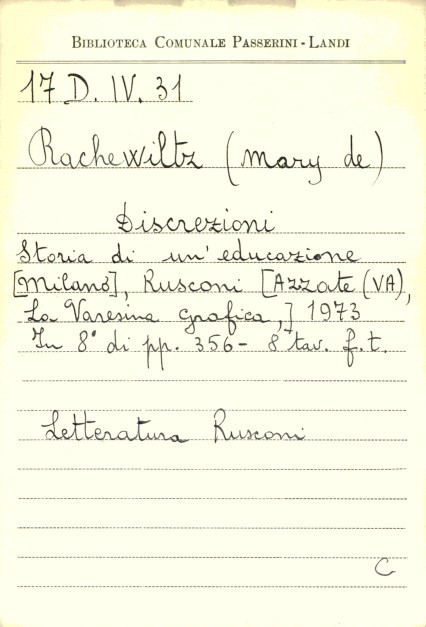 BIBLIOTECA COMUNALE PASSERINI - LANDI
17 D. IV. 31
Rachewiltz (Mary de)
Discrezioni
Storia di un' educazione
[Milano], Rusconi [Azzate (VA),
La Varesina Grafica,] 1973
In 8° di pp. 356 - 8 tav. f. t.
Letteratura Rusconi
C